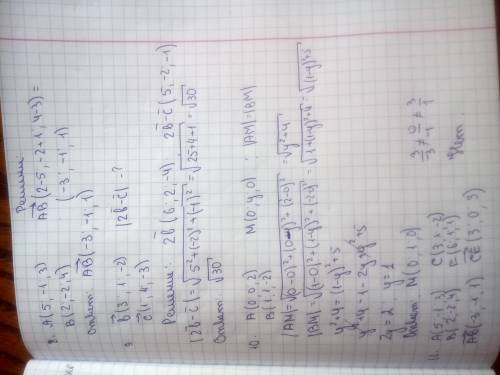 8. A(5,-1,3) Решение:
B(2,-2,4) AB(2-5, -2+1, 4-3) =
(-3; -1; 1)
Ответ: AB(-3; -1; 1)
9. b(3; 1; -2) |2b-c| - ?
c(1, 4, -3)
Решение: 2b(6; 2; -4) 2b-c(5; -2; -1)
|2b-c| = √5²+(-2)²+(-1)² = √25+4+1 = √30
Ответ √30
10. A(0;0;2) M(0;y;0) : |AM|=|BM|
B(1;1;-2)
|AM|=√(0-0)²+(0-y)²+(2-0)² = √y²+4
|BM|=√(1-0)²+(1-y)²+(-2-0)² = √1+(1-y)²+4 = √(1-y)²+5
y²+4=(1-y)²+5
y²+4=1-2y+y²+5
2y=2 y=1
Ответ M(0,1,0)
11. A(5,-1,3) C(3,1,-2)
B(2,-2,4) E(6,1,1) -3/3 ≠ 0/-1 ≠ 3/1
AB(-3,-1,1) CE(3;0;3) Нет.